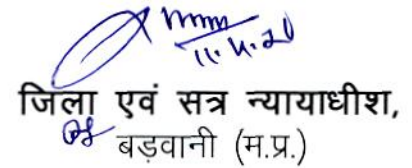 11.4.20
जिला एवं सत्र न्यायाधीश,
बड़वानी (म.प्र.)